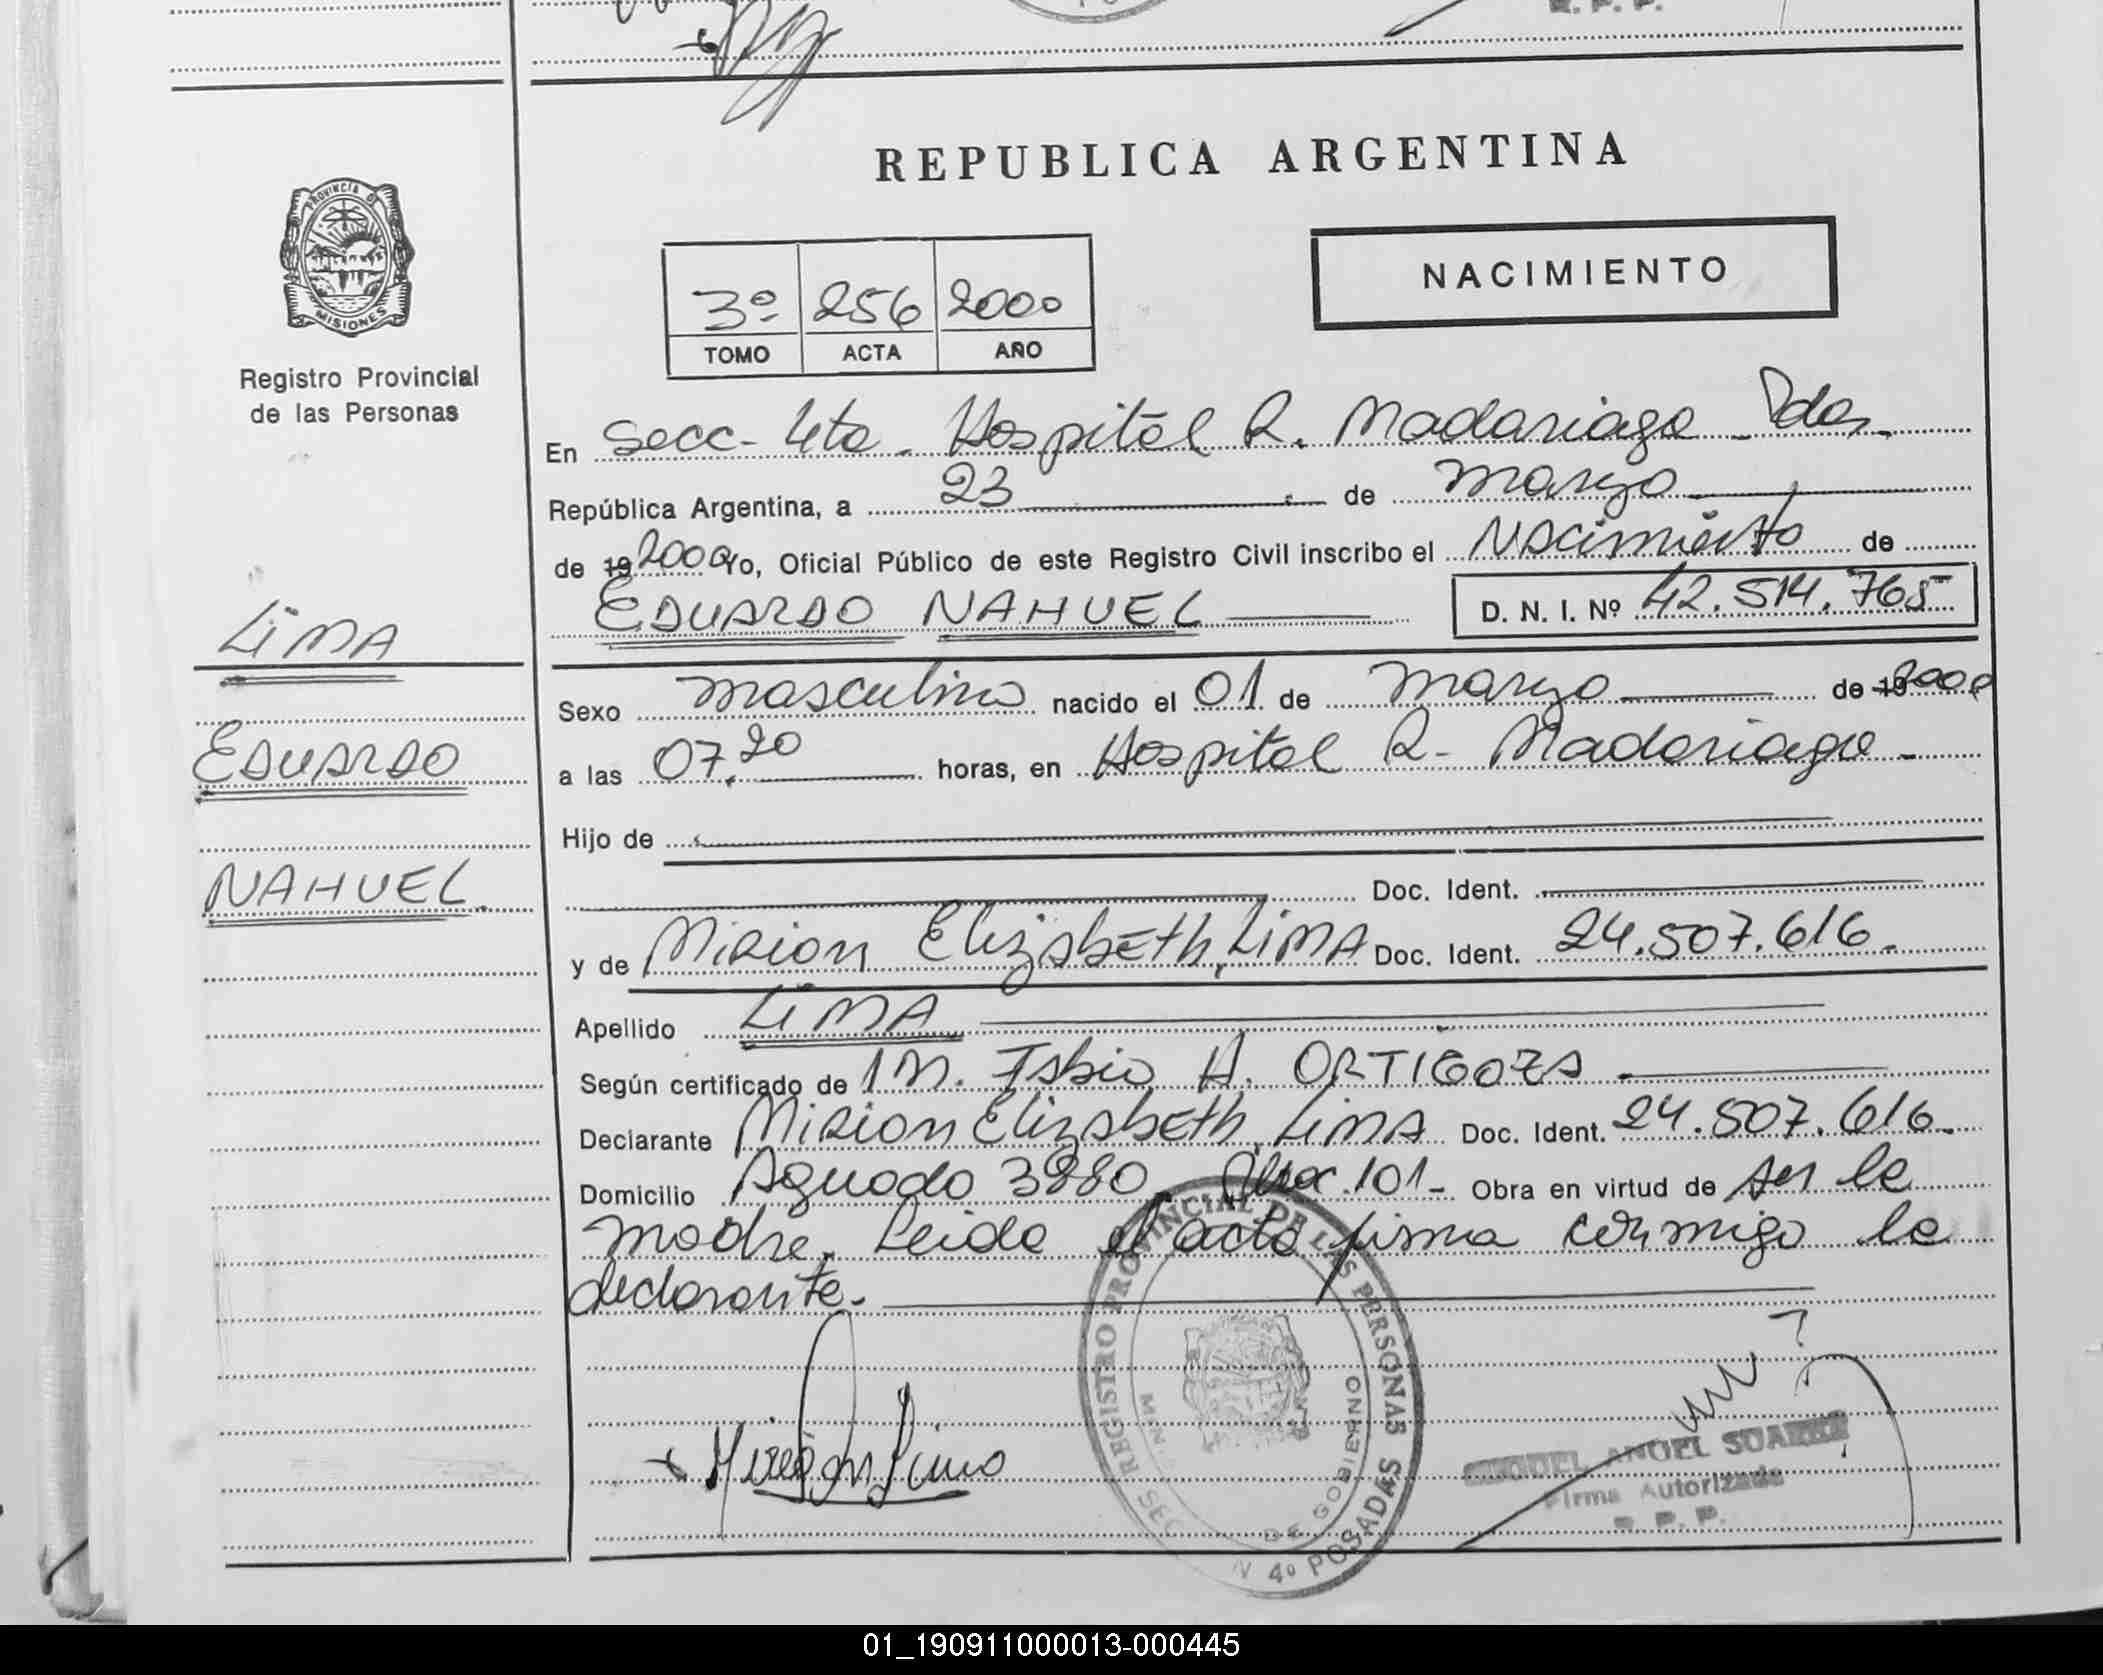 R. P. P.
PROVINCIA DE
MISIONES
Registro Provincial
de las Personas
LiMA
EDUARDO
NAHUEL
REPUBLICA ARGENTINA
NACIMIENTO
3º 256 2000
TOMO ACTA AÑO
En Secc- 4ta. Hospital R. Madariaga - Pdas.
República Argentina, a 23 de Marzo
de 19 2000 Yo, Oficial Público de este Registro Civil inscribo el Nacimiento de
EDUARDO NAHUEL D. N. I. Nº 42.514.765
Sexo Masculino nacido el 01 de Marzo de 19 2000
a las 07.20 horas, en Hospital R- Madariaga -
Hijo de
Doc. Ident.
y de Mirion Elizabeth, LiMA Doc. Ident. 24.507.616.
Apellido LiMA
Según certificado de Fabio A. ORTIGOZA
Declarante Mirion Elizabeth, LiMA Doc. Ident. 24.507.616.
Domicilio Aguado 3880 101- Obra en virtud de ser la
madre. Leida el acta firma conmigo la
declarante.
REGISTRO PROVINCIAL DE LAS PERSONAS
DE GOBIERNO
SEC 4º POSADAS
MIGUEL ANGEL SUAREZ
Firma Autorizada
R. P. P.
01_190911000013-000445